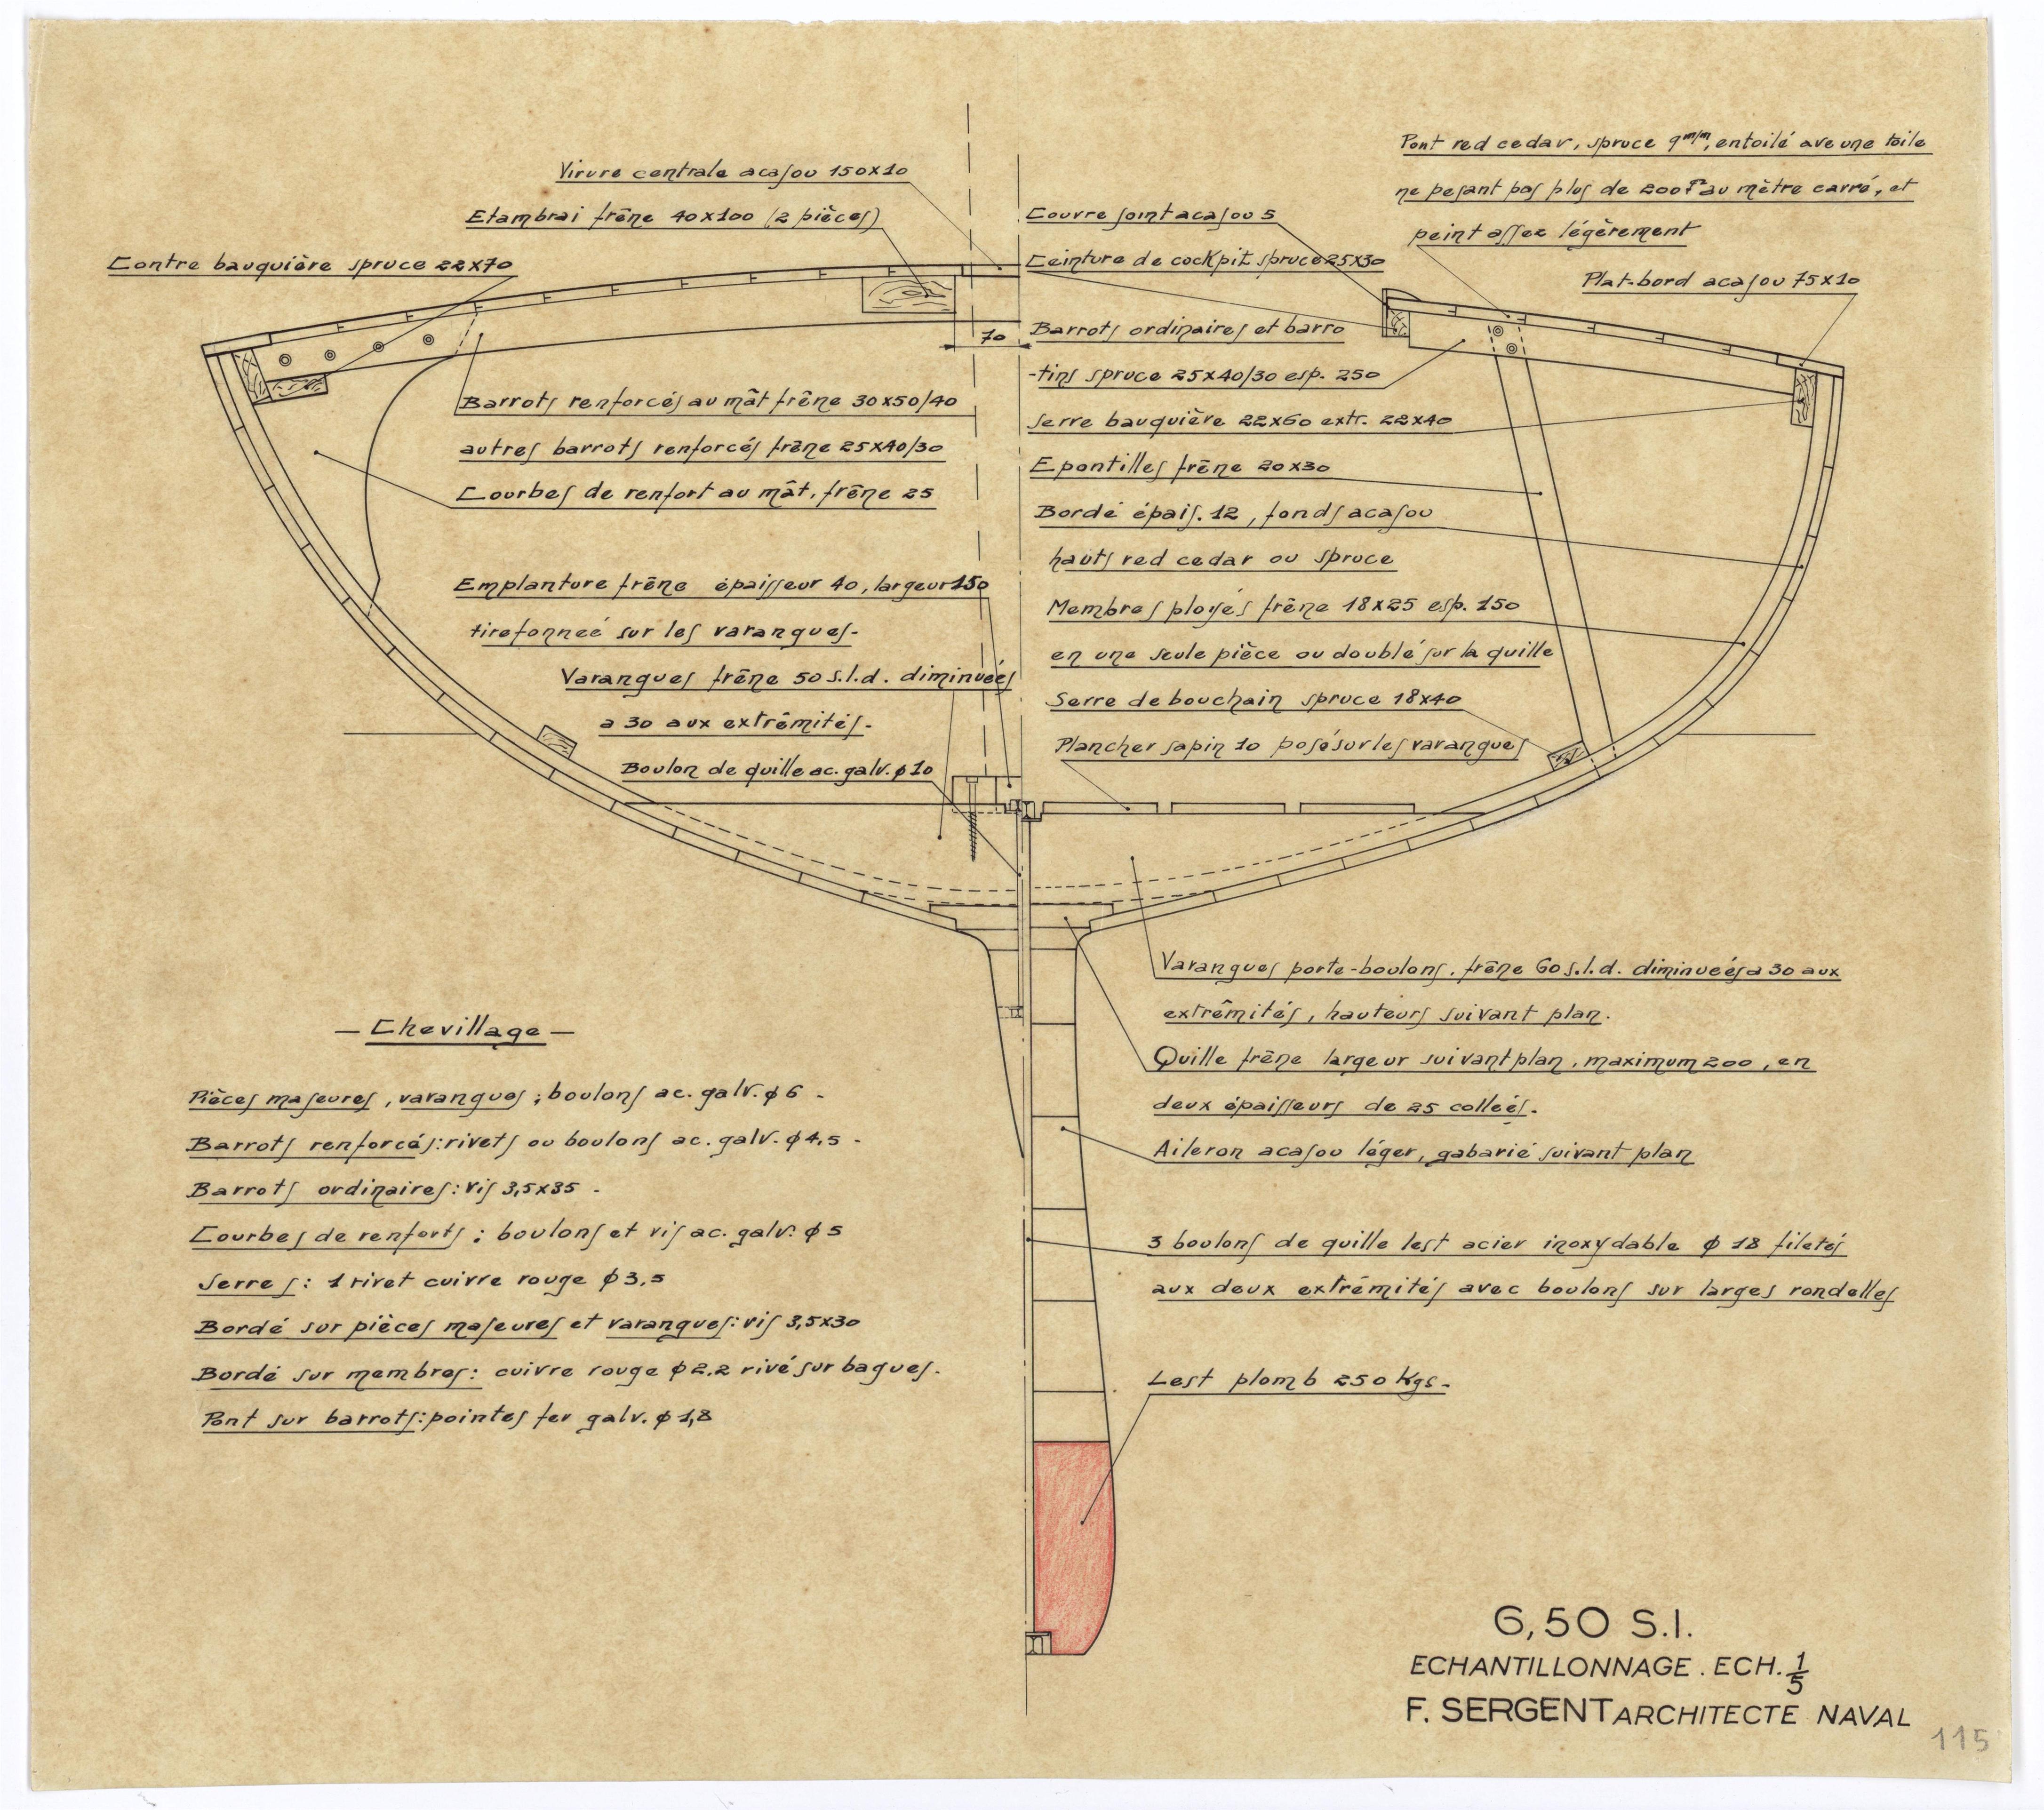 Virure centrale acajou 150x10
Etambrai frêne 40x100 (2 pièces)
Contre bauquière spruce 22x70
70
Barrots renforcés au mât frêne 30x50/40
autres barrots renforcés frêne 25x40/30
Courbes de renfort au mât, frêne 25
Emplanture frêne épaisseur 40, largeur 150
tirefonneé sur les varangues-
Varangues frêne 50 s.l.d. diminueés
a 30 aux extrêmités-
Boulon de quille ac. galv. ϕ 10
Pont red cedar, spruce 9 m/m, entoilé ave une toile
ne pesant pas plus de 200 gr au mètre carré, et
peint assez légèrement
Plat-bord acajou 75x10
Couvre joint acajou 5
Ceinture de cockpit spruce 25x30
Barrots ordinaires et barro
-tins spruce 25x40/30 esp. 250
Serre bauquière 22x60 extr. 22x40
Epontilles frêne 20x30
Bordé épais. 12, fonds acajou
hauts red cedar ou spruce
Membres ployés frêne 18x25 esp. 150
en une seule pièce ou doublé sur la quille
Serre de bouchain spruce 18x40
Plancher sapin 10 posé sur les varangues
Varangues porte-boulons, frêne 60 s.l.d. diminueés a 30 aux
extrêmités, hauteurs suivant plan.
Quille frêne largeur suivant plan, maximum 200, en
deux épaisseurs de 25 colleés.
Aileron acajou léger, gabarié suivant plan
3 boulons de quille lest acier inoxydable ϕ 18 filetés
aux deux extrêmités avec boulons sur larges rondelles
Lest plomb 250 Kgs-
- Chevillage -
Pièces majeures, varangues; boulons ac. galv. ϕ 6 -
Barrots renforcés: rivets ou boulons ac. galv. ϕ 4,5 -
Barrots ordinaires: vis 3,5x35 -
Courbes de renforts; boulons et vis ac. galv. ϕ 5
Serres: 1 rivet cuivre rouge ϕ 3,5
Bordé sur pièces majeures et varangues: vis 3,5x30
Bordé sur membres: cuivre rouge ϕ 2,2 rivé sur bagues.
Pont sur barrots: pointes fer galv. ϕ 1,8
6,50 S.I.
ECHANTILLONNAGE. ECH. 1/5
F. SERGENT ARCHITECTE NAVAL
115